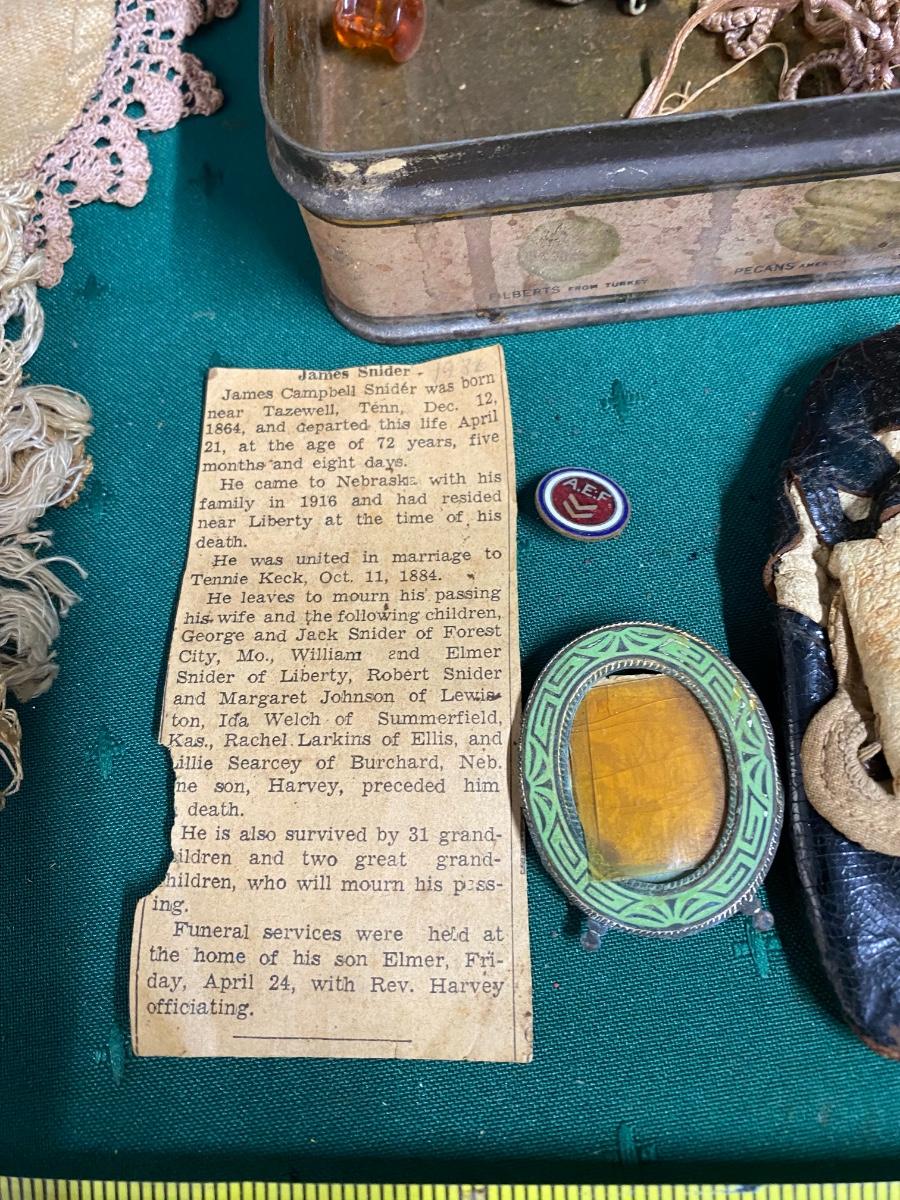 FILBERTS FROM TURKEY
PECANS
James Snider -
James Campbell Snider was born
near Tazewell, Tenn, Dec. 12,
1864, and departed this life April
21, at the age of 72 years, five
months and eight days.
He came to Nebraska with his
family in 1916 and had resided
near Liberty at the time of his
death.
He was united in marriage to
Tennie Keck, Oct. 11, 1884.
He leaves to mourn his passing
his wife and the following children,
George and Jack Snider of Forest
City, Mo., William and Elmer
Snider of Liberty, Robert Snider
and Margaret Johnson of Lewis-
ton, Ida Welch of Summerfield,
Kas., Rachel Larkins of Ellis, and
illie Searcey of Burchard, Neb.
ne son, Harvey, preceded him
death.
He is also survived by 31 grand-
ildren and two great grand-
hildren, who will mourn his pass-
ing.
Funeral services were held at
the home of his son Elmer, Fri-
day, April 24, with Rev. Harvey
officiating.
A.E.F